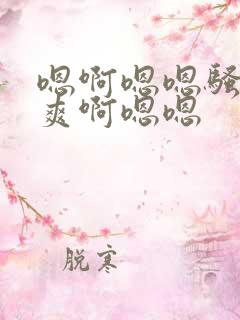 嗯啊嗯嗯骚
爽啊嗯嗯
脱寒